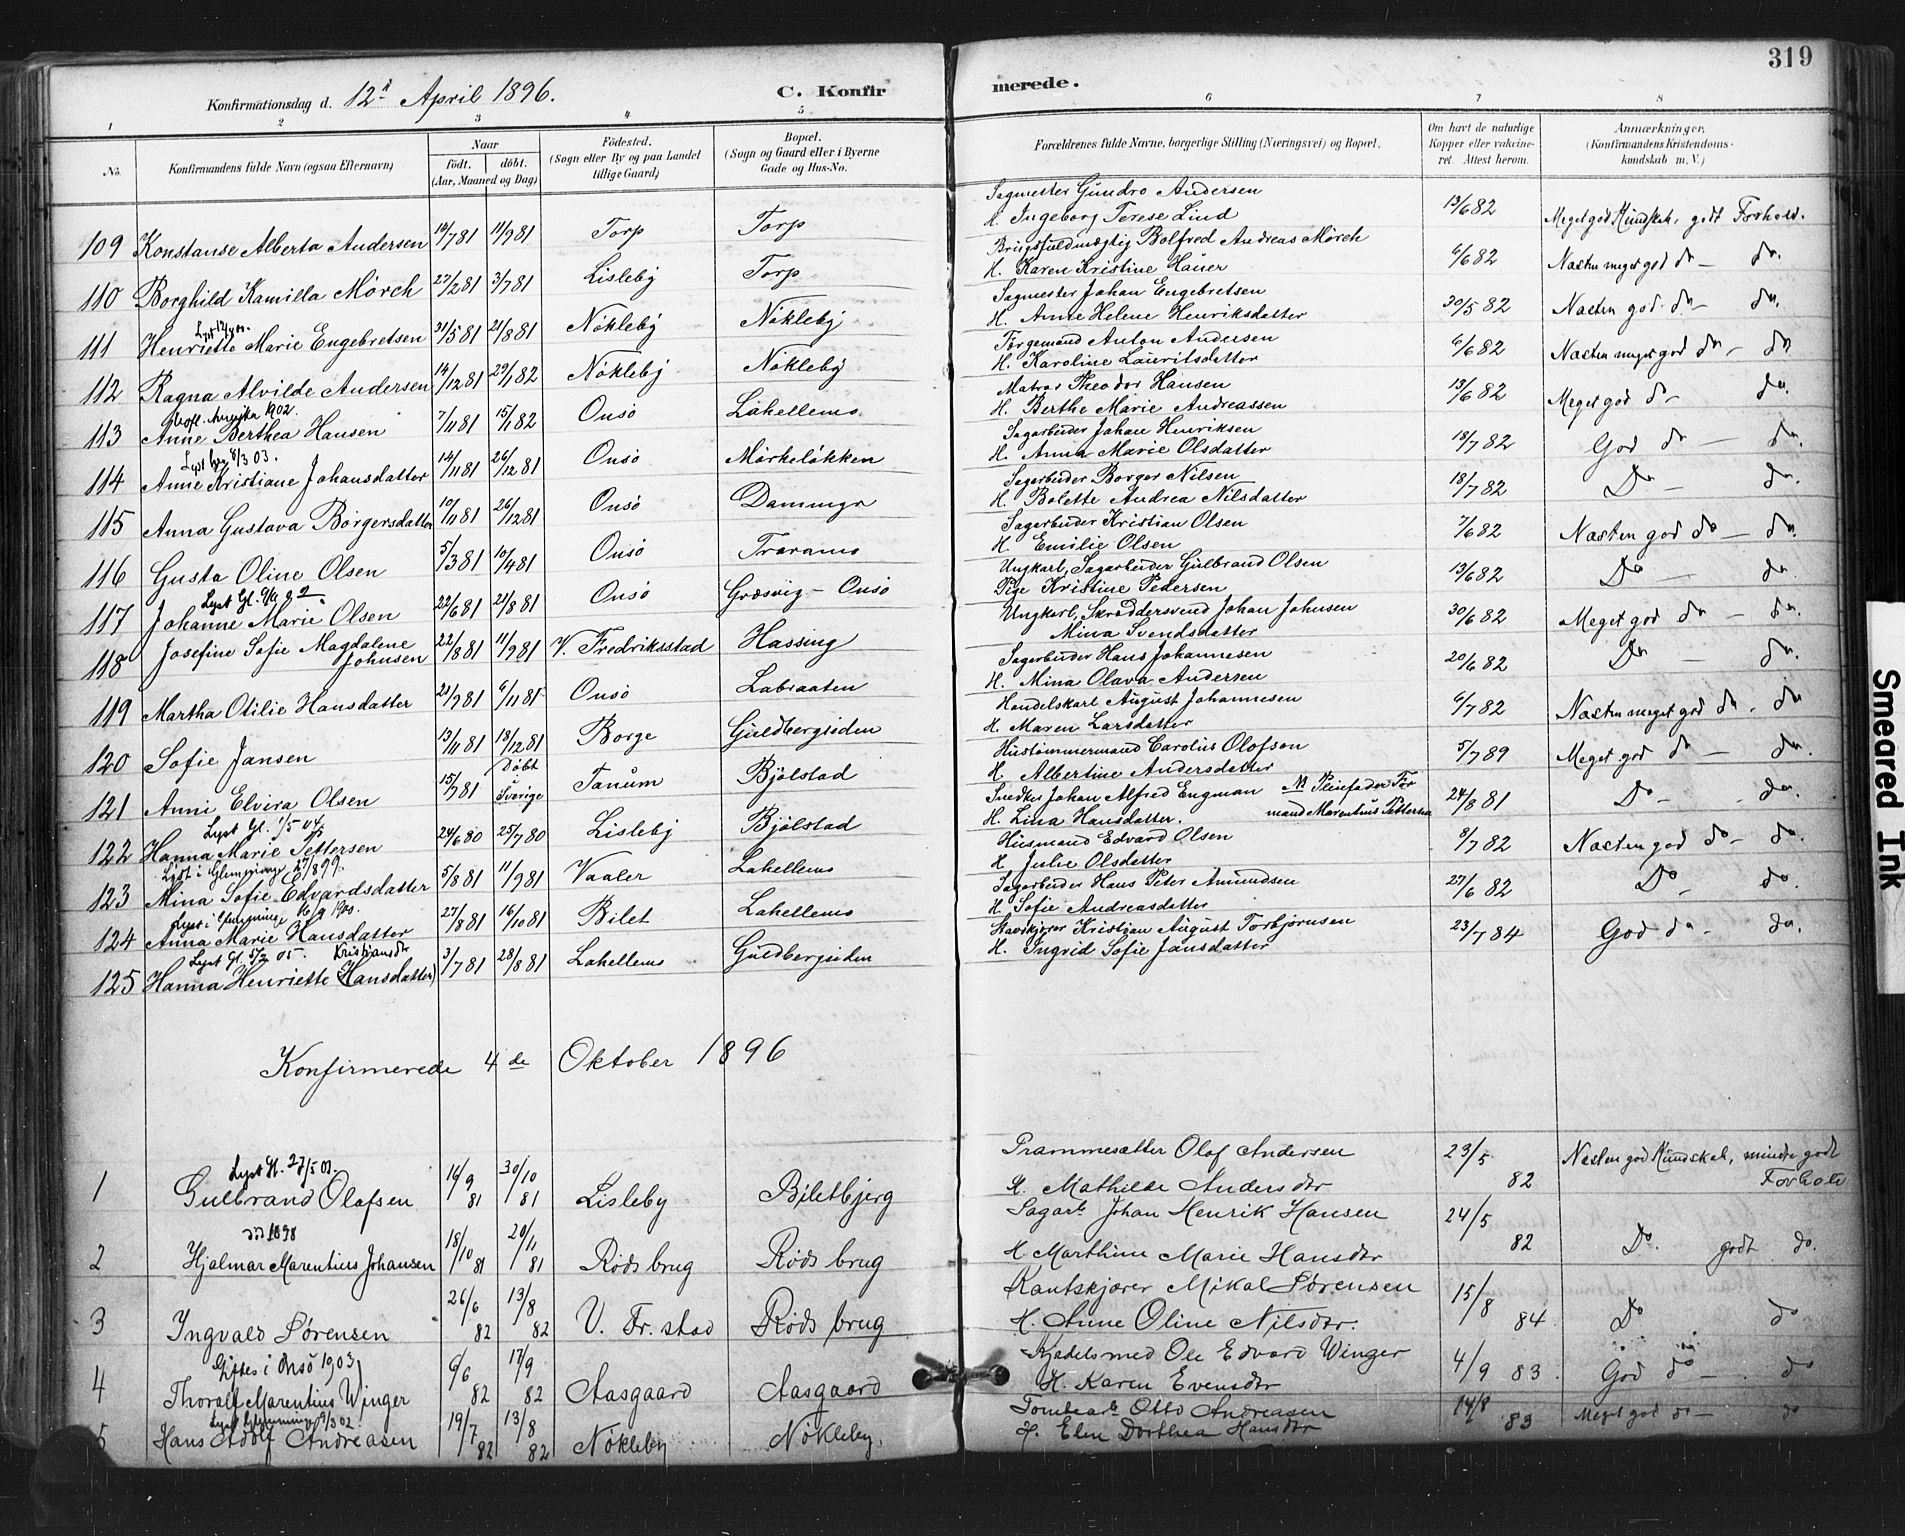 319
Konfirmationsdag d. 12te April 1896. C. Konfirmerede.
1 2 3 4 5 6 7 8
No. Konfirmandens fulde Navn (ogsaa Efternavn) Naar født. døbt. (Aar, Maaned og Dag) Fødested. (Sogn eller By og paa Landet tillige Gaard) Bopæl. (Sogn og Gaard eller i Byerne Gade og Hus-No. Forældrenes fulde Navne, borgerlige Stilling (Næringsvei) og Bopæl. Om havt de naturlige Kopper eller vakcineret. Attest herom. Anmærkninger, (Konfirmandens Kristendomskundskab m. V.)
Sagmester Gundro Andersen
109 Konstanse Alberta Andersen 11/9 81 Torp Torp H. Ingeborg Terese Lind 13/6 82 Meget god Kundskab, godt Forhold.
Brugsfuldmægtig Bolfred Andreas Mörch
110 Borghild Kamilla Mörch 27/2 81 3/7 81 Lisleby Torp H. Karen Kristine Hauer 6/6 82 Næsten meget god do – do.
Sagmester Johan Engebretsen
111 Henriette Marie Engebretsen 31/5 81 21/8 81 Nökleby Nökleby H. Anne Helene Henriksdatter 30/5 82 Næsten god do – do.
Anton Andersen
112 Ragna Alvilde Andersen 14/12 81 29/1 82 Nökleby Nökleby H. Karoline Lauritsdatter 6/6 82 Næsten meget god do – do
Utfl. Amerika 1902. Matros Theodor Hansen
113 Anne Berthea Hansen 7/11 81 15/1 82 Onsö Lahellems H. Berthe Marie Andreassen 13/6 82 Meget god do – do.
Lyst 8/3 03. Sagarbeider Johan Henriksen
114 Anne Kristiane Johansdatter 14/11 81 26/12 81 Onsö Mörkelökken H. Anna Marie Olsdatter 18/7 82 God do – do.
Sagarbeider Borger Nilsen
115 Anna Gustava Börgersdatter 10/11 81 26/12 81 Onsö Dammyr H. Bolette Andrea Nilsdatter 18/7 82 Do – do.
Sagarbeider Kristian Olsen
116 Gusta Oline Olsen 5/3 81 10/4 81 Onsö H. Emilie Olsen 7/6 82 Næsten god do – do.
Lyst Gl. Ungkarl, Sagarbeider Gulbrand Olsen
117 Johanne Marie Olsen 22/6 81 21/8 81 Onsö Græsvig – Onsö Pige Kristine Pedersen 13/6 82 Do – do.
Ungkarl, Skræddersvend Johan Johnsen
118 Josefine Sofie Magdalene Johnsen 22/8 81 11/9 81 V. Fredriksstad Hassing Mina Svendsdatter 30/6 82 Meget god do – do.
Sagarbeider Hans Johannesen
119 Martha Otilie Hansdatter 6/11 81 Onsö Labraaten H. Mina Olava Andersen 20/6 82 Do – do.
Handelskarl August Johannesen
120 Sofie Jansen 13/11 81 18/12 81 Borge Guldbergsiden H. Maren Larsdatter 6/7 82 Næsten meget god do. do
Hustömmermand Carolus Olofson
121 Anni Elvira Olsen 15/7 81 Döbt Sverige Tanum Bjölstad H. Albertine Andersdatter 5/7 89 Meget god do – do.
Lyst Gl. 1/5 04 Snedker Johan Alfred Engman Pleiefader Formand Marentius Pettersen
122 Hanna Marie Pettersen 24/6 80 25/7 80 Lisleby Bjölstad H. Lina Hansdatter. 24/8 81 Do – do.
Lyst i Glemminge 27/8 99. Husmand Edvard Olsen
123 Mina Sofie Edvardsdatter 5/8 81 11/9 81 Vaaler Lahellems H. Julie Olsdatter 8/7 82 Næsten god do – do.
Lyst i Glemminge 1900. Sagarbeider Hans Peter Amundsen
124 Anna Marie Hansdatter 27/8 81 16/10 81 Bilet Lahellems H. Sofie Andreasdatter 27/6 82 Do – do.
Lyst Gl. 5/2 05. Kristiansdr Stavskjörer Kristian August Torbjörnsen
125 Hanna Henriette (Hansdatter) 3/7 81 28/8 81 Lahellems Guldbergsiden H. Ingrid Sofie Jansdatter 23/7 84 God do – do.
Konfirmerede 4de Oktober 1896
Lyst Gl. 27/5 01. Prammesætter Olaf Andersen
1 Gulbrand Olafsen 16/9 81 30/10 81 Lisleby Biletbjerg H. Mathilde Andersdtr 23/5 82 Næsten god Kundskab, mindre godt Forhold
död 1898 Sagarb. Johan Henrik Hansen
2 Hjalmar Marentius Johansen 18/10 81 20/11 81 Röds brug Röds brug H. Marthine Marie Hansdtr 24/5 82 Do. godt do.
Kantskjærer Mikal Sörensen
3 Ingvald Sörensen 26/6 82 13/8 82 V. Fr. stad Röds brug H. Anne Oline Nilsdtr. 15/8 84 Do do
Giftes i Onsö 1903 Kjedelsmed Ole Edvard Winger
4 Thoralf Marentius Winger 6/6 82 17/9 82 Aasgaard Aasgaard H. Karen Evensdtr 4/9 83. God do – do
Lyst Glemminge 9/3 02. Tomtearb. Otto Andreasen
5 Hans Adolf Andreasen 19/7 82 13/8 82 Nökleby Nökleby. H. Elen Dorthea Hansdtr 14/8 83 Meget god do – do
Smeared Ink